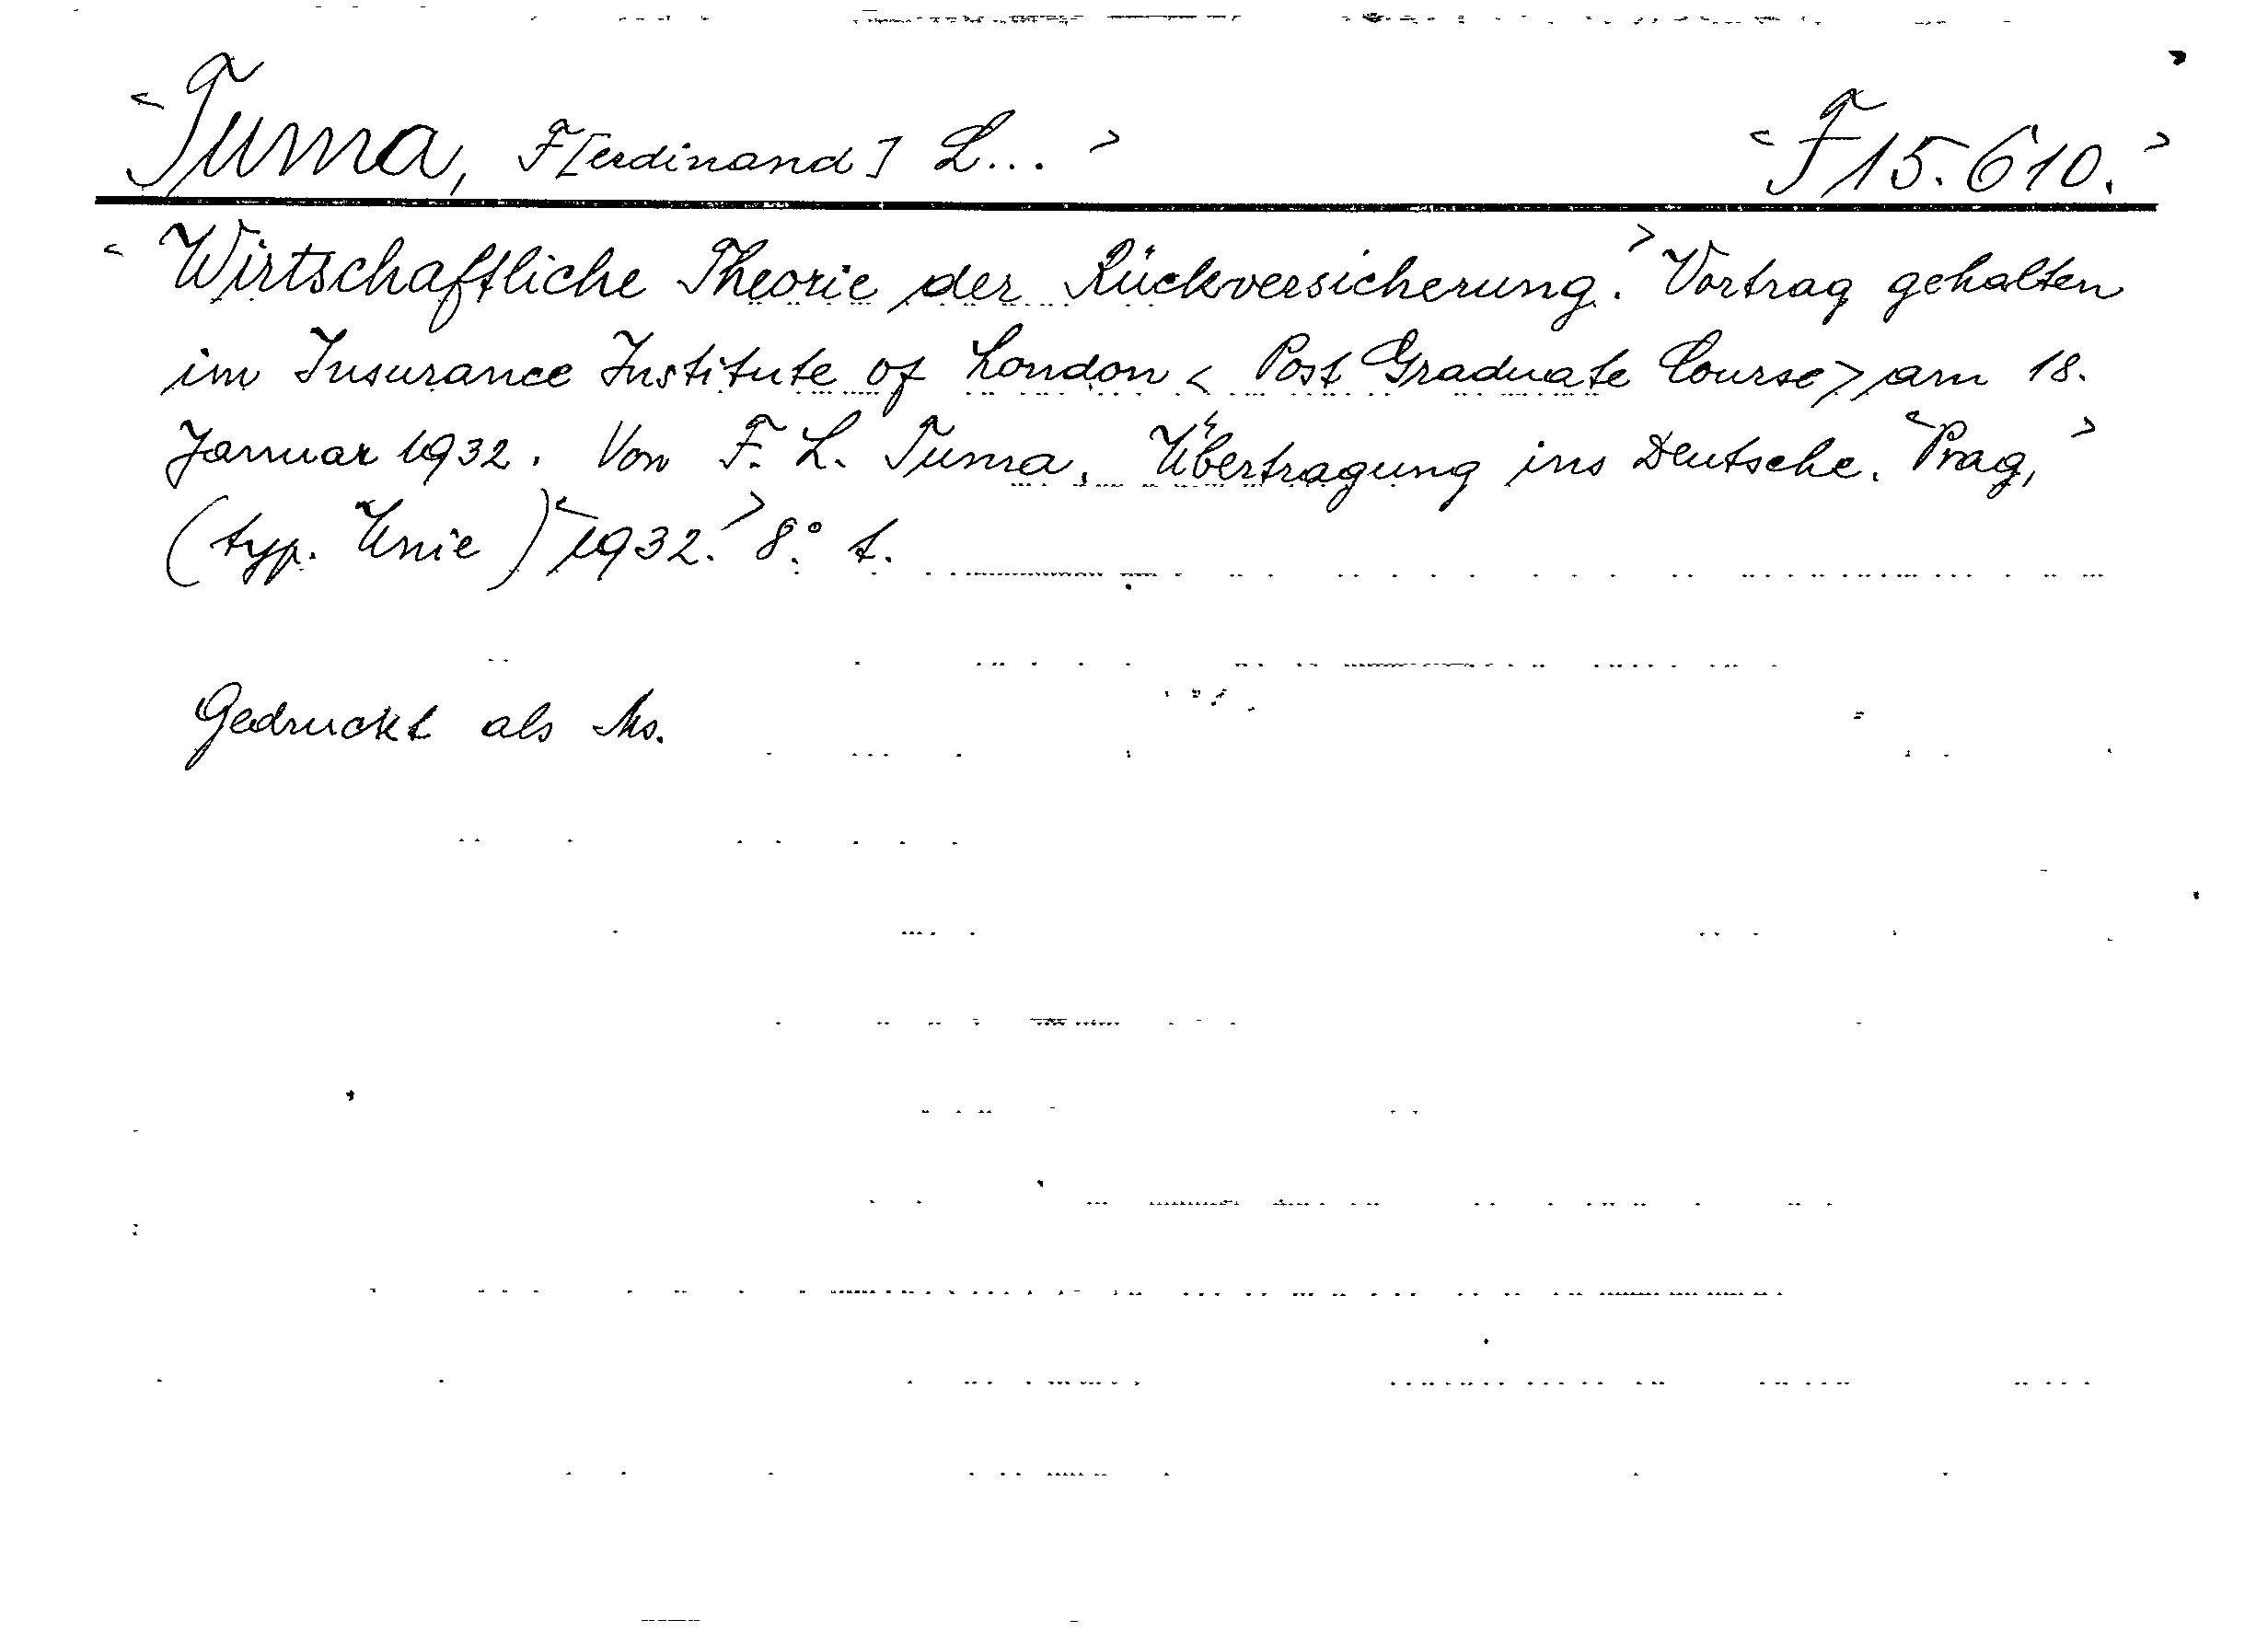 <Tuma, F[erdinand] L...> <F 15.610.>
<Wirtschaftliche Theorie der Rückversicherung.> Vortrag gehalten
im Insurance Institute of London <Post Graduate Course> am 18.
Januar 1932. Von F. L. Tuma. Übertragung ins Deutsche. <Prag,>
(typ. Unie) <1932.> 8.° t.
Gedruckt als Ms.